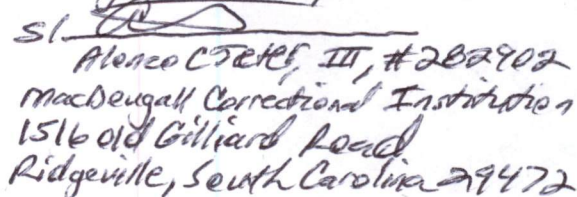 S/
Alonzo C Jeter, III, #282902
MacDougall Correctional Institution
1516 old Gilliard Road
Ridgeville, South Carolina 29472